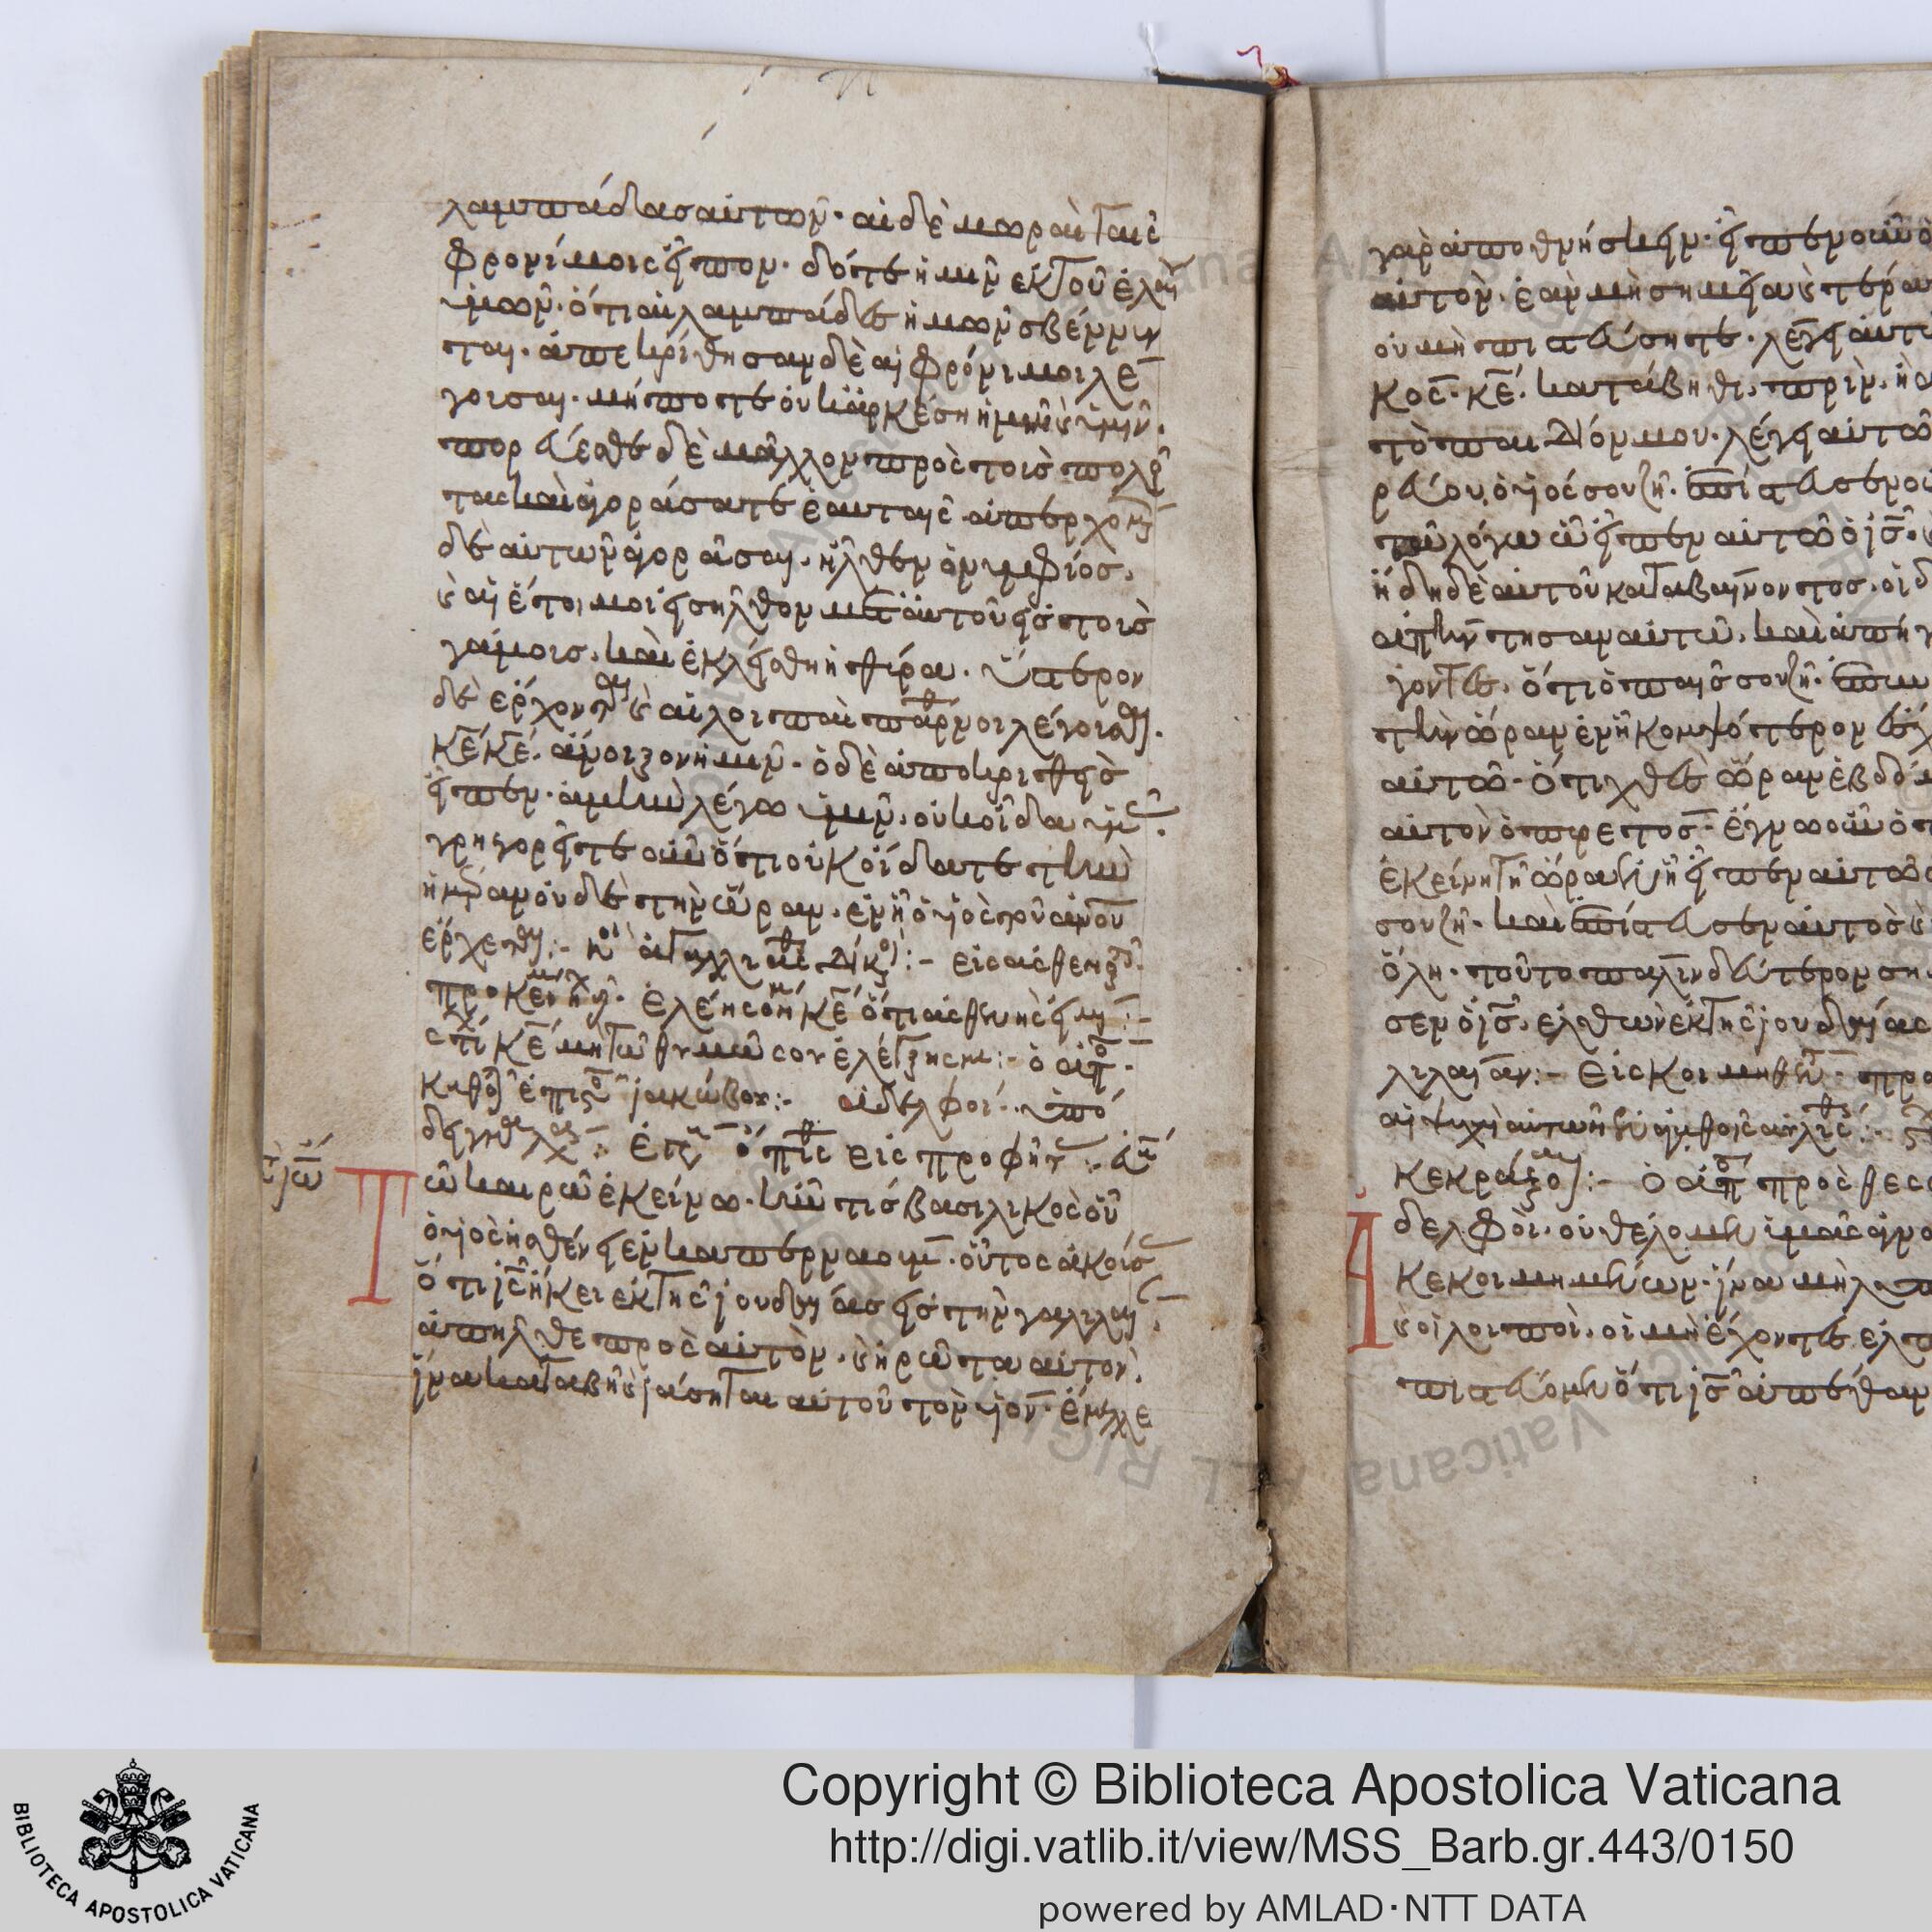 λαμπάδας αὐτῶν· αἱ δὲ μωραὶ ταῖς
φρονίμοις εἶπον· δότε ἡμῖν ἐκ τοῦ ἐλαίου
ὑμῶν· ὅτι αἱ λαμπάδες ἡμῶν σβέννυν
ται· ἀπεκρίθησαν δὲ αἱ φρόνιμοι λέ
γουσαι· μήποτε οὐκ ἀρκέσῃ ἡμῖν καὶ ὑμῖν·
πορεύεσθε δὲ μᾶλλον πρὸς τοὺς πωλοῦν
τας καὶ ἀγοράσατε ἑαυταῖς ἀπερχομένων
δὲ αὐτῶν ἀγοράσαι, ἦλθεν ὁ νυμφίος,
καὶ αἱ ἕτοιμοι εἰσῆλθον μετ' αὐτοῦ εἰς τοὺς
γάμους, καὶ ἐκλείσθη ἡ θύρα. ὕστερον
δὲ ἔρχονται καὶ αἱ λοιπαὶ παρθένοι λέγουσαι·
κε κε. ἄνοιξον ἡμῖν· ὁ δὲ ἀποκριθεὶς
εἶπεν· ἀμὴν λέγω ὑμῖν, οὐκ οἶδα ὑμᾶς·
γρηγορεῖτε οὖν ὅτι οὐκ οἴδατε τὴν
ἡμέραν οὐδὲ τὴν ὥραν, ἐν ᾗ ὁ υἱὸς τοῦ ανου
ἔρχεται:-
προκείμενον ἐλέησόν με κε ὅτι ἀσθενής εἰμι:-
στίχ κε μὴ τῷ θυμῷ σου ἐλέγξῃς με:- ὁ ἀπ
καθολ ἐπιστ ἰακώβου:- ἀδελφοί
ἰω
Τῷ καιρῷ ἐκείνῳ. ἦν τις βασιλικὸς οὗ
ὁ υἱὸς ἠσθένει ἐν καπερναούμ· οὗτος ἀκούσας
ὅτι ις ἥκει ἐκ τῆς ἰουδαίας εἰς τὴν γαλιλαίαν·
ἀπῆλθε πρὸς αὐτόν, καὶ ἠρώτα αὐτὸν,
ἵνα καταβῇ καὶ ἰάσηται αὐτοῦ τὸν υἱόν· ἔμελλε
γὰρ ἀποθνήσκειν· εἶπεν οὖν ὁ
αὐτόν, ἐὰν μὴ σημεῖα καὶ τέρα
οὐ μὴ πιστεύσητε. λέγει αὐτ
κός· κε. κατάβηθι, πρὶν ἢ ἀ
τὸ παιδίον μου· λέγει αὐτῷ
ρεύου, ὁ υἱός σου ζῇ. ἐπίστευσεν ο
τῷ λόγῳ ᾧ εἶπεν αὐτῷ ὁ ις,
ἤδη δὲ αὐτοῦ καταβαίνοντος, οἱ δ
ἀπήντησαν αὐτῷ, καὶ ἀπήγ
γοντες, ὅτι ὁ παῖς σου ζῇ.
τὴν ὥραν ἐν ᾗ κομψότερον ἔσχ
αὐτῷ· ὅτι χθὲς ὥραν ἑβδόμ
αὐτὸν ὁ πυρετός· ἔγνω οὖν ὁ π
ἐκείνῃ τῇ ὥρᾳ ἐν ᾗ εἶπεν αὐτῷ ὁ
σου ζῇ. καὶ ἐπίστευσεν αὐτὸς καὶ
ὅλη· τοῦτο πάλιν δεύτερον ση
σεν ὁ ις, ἐλθὼν ἐκ τῆς ἰουδαίας
λιλαίαν:- εἰς κοιμηθέν προ
αἱ ψυχαὶ αὐτῶν ἐν ἀγαθοῖς αὐλισ:-
κεκραξομαι:- ὁ ἀπ πρὸς θεσ
Ἀδελφοί, οὐ θέλομεν ὑμᾶς ἀγνο
κεκοιμημένων, ἵνα μὴ λυπ
καὶ οἱ λοιποί, οἱ μὴ ἔχοντες ἐλπ
πιστεύομεν ὅτι ις ἀπέθαν
BIBLIOTECA APOSTOLICA VATICANA
Copyright © Biblioteca Apostolica Vaticana
http://digi.vatlib.it/view/MSS_Barb.gr.443/0150
powered by AMLAD·NTT DATA